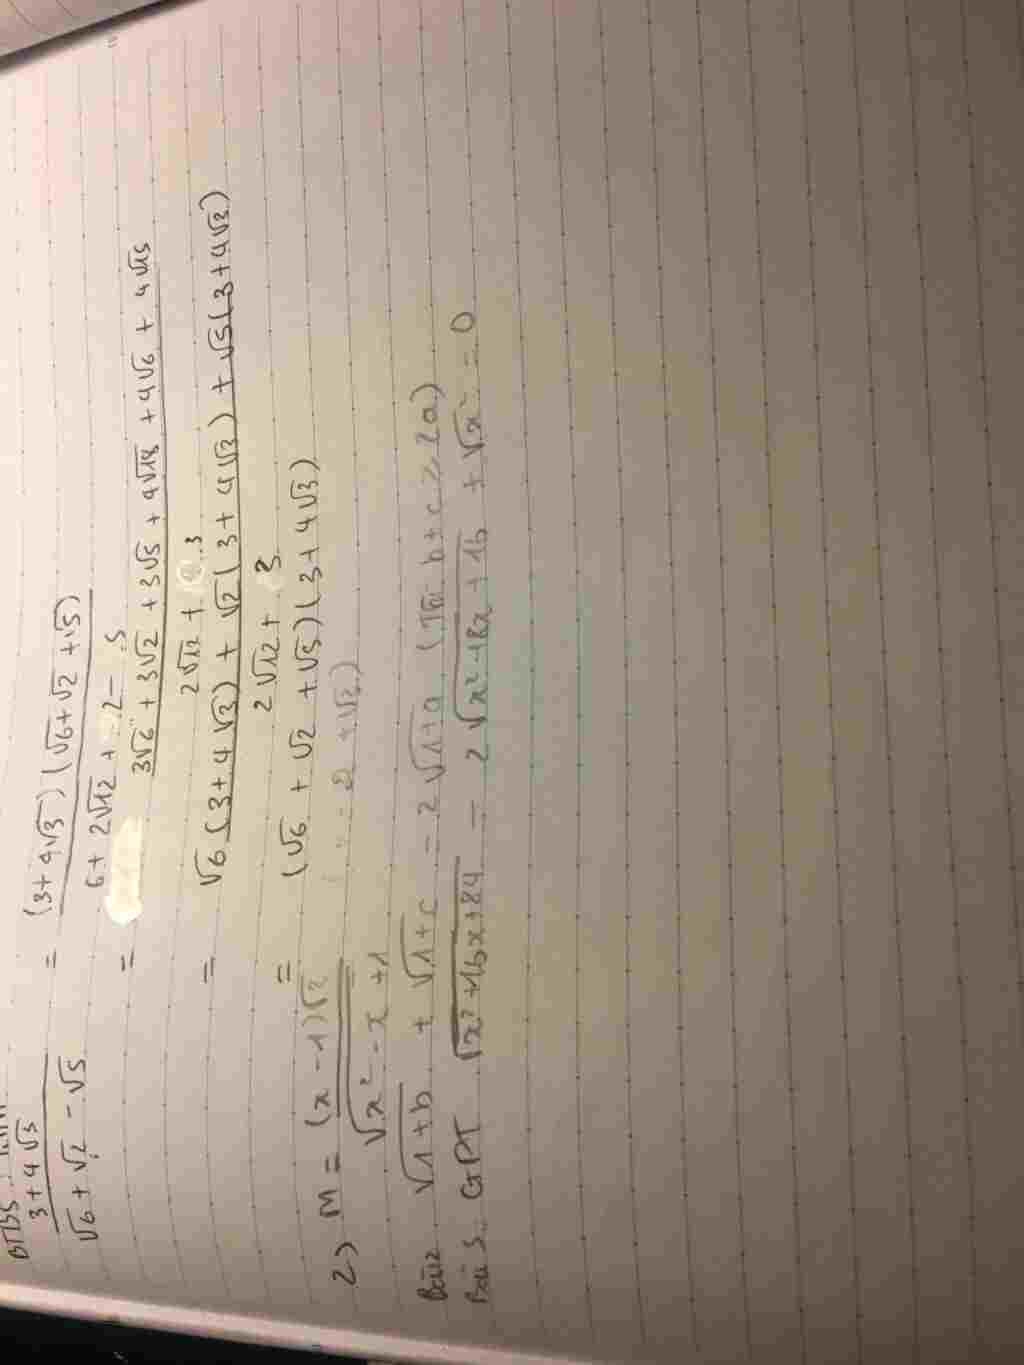 3+4√3 / √6+√2-√5 = (3+4√3)(√6+√2+√5) / 6+2√12+2-5
= 3√6+3√2+3√5+4√18+4√6+4√15 / 2√12+3
= √6(3+4√3)+√2(3+4√3)+√5(3+4√3) / 2√12+3
= (√6+√2+√5)(3+4√3)
2) M = (x-1)√2 / √x²-x+1
Bài 2 √1+b + √1+c - 2√1+a b+c ≥ 2a)
Bài 3. GPT √x²+16x+84 - 2√x²+8x+16 + √x² = 0